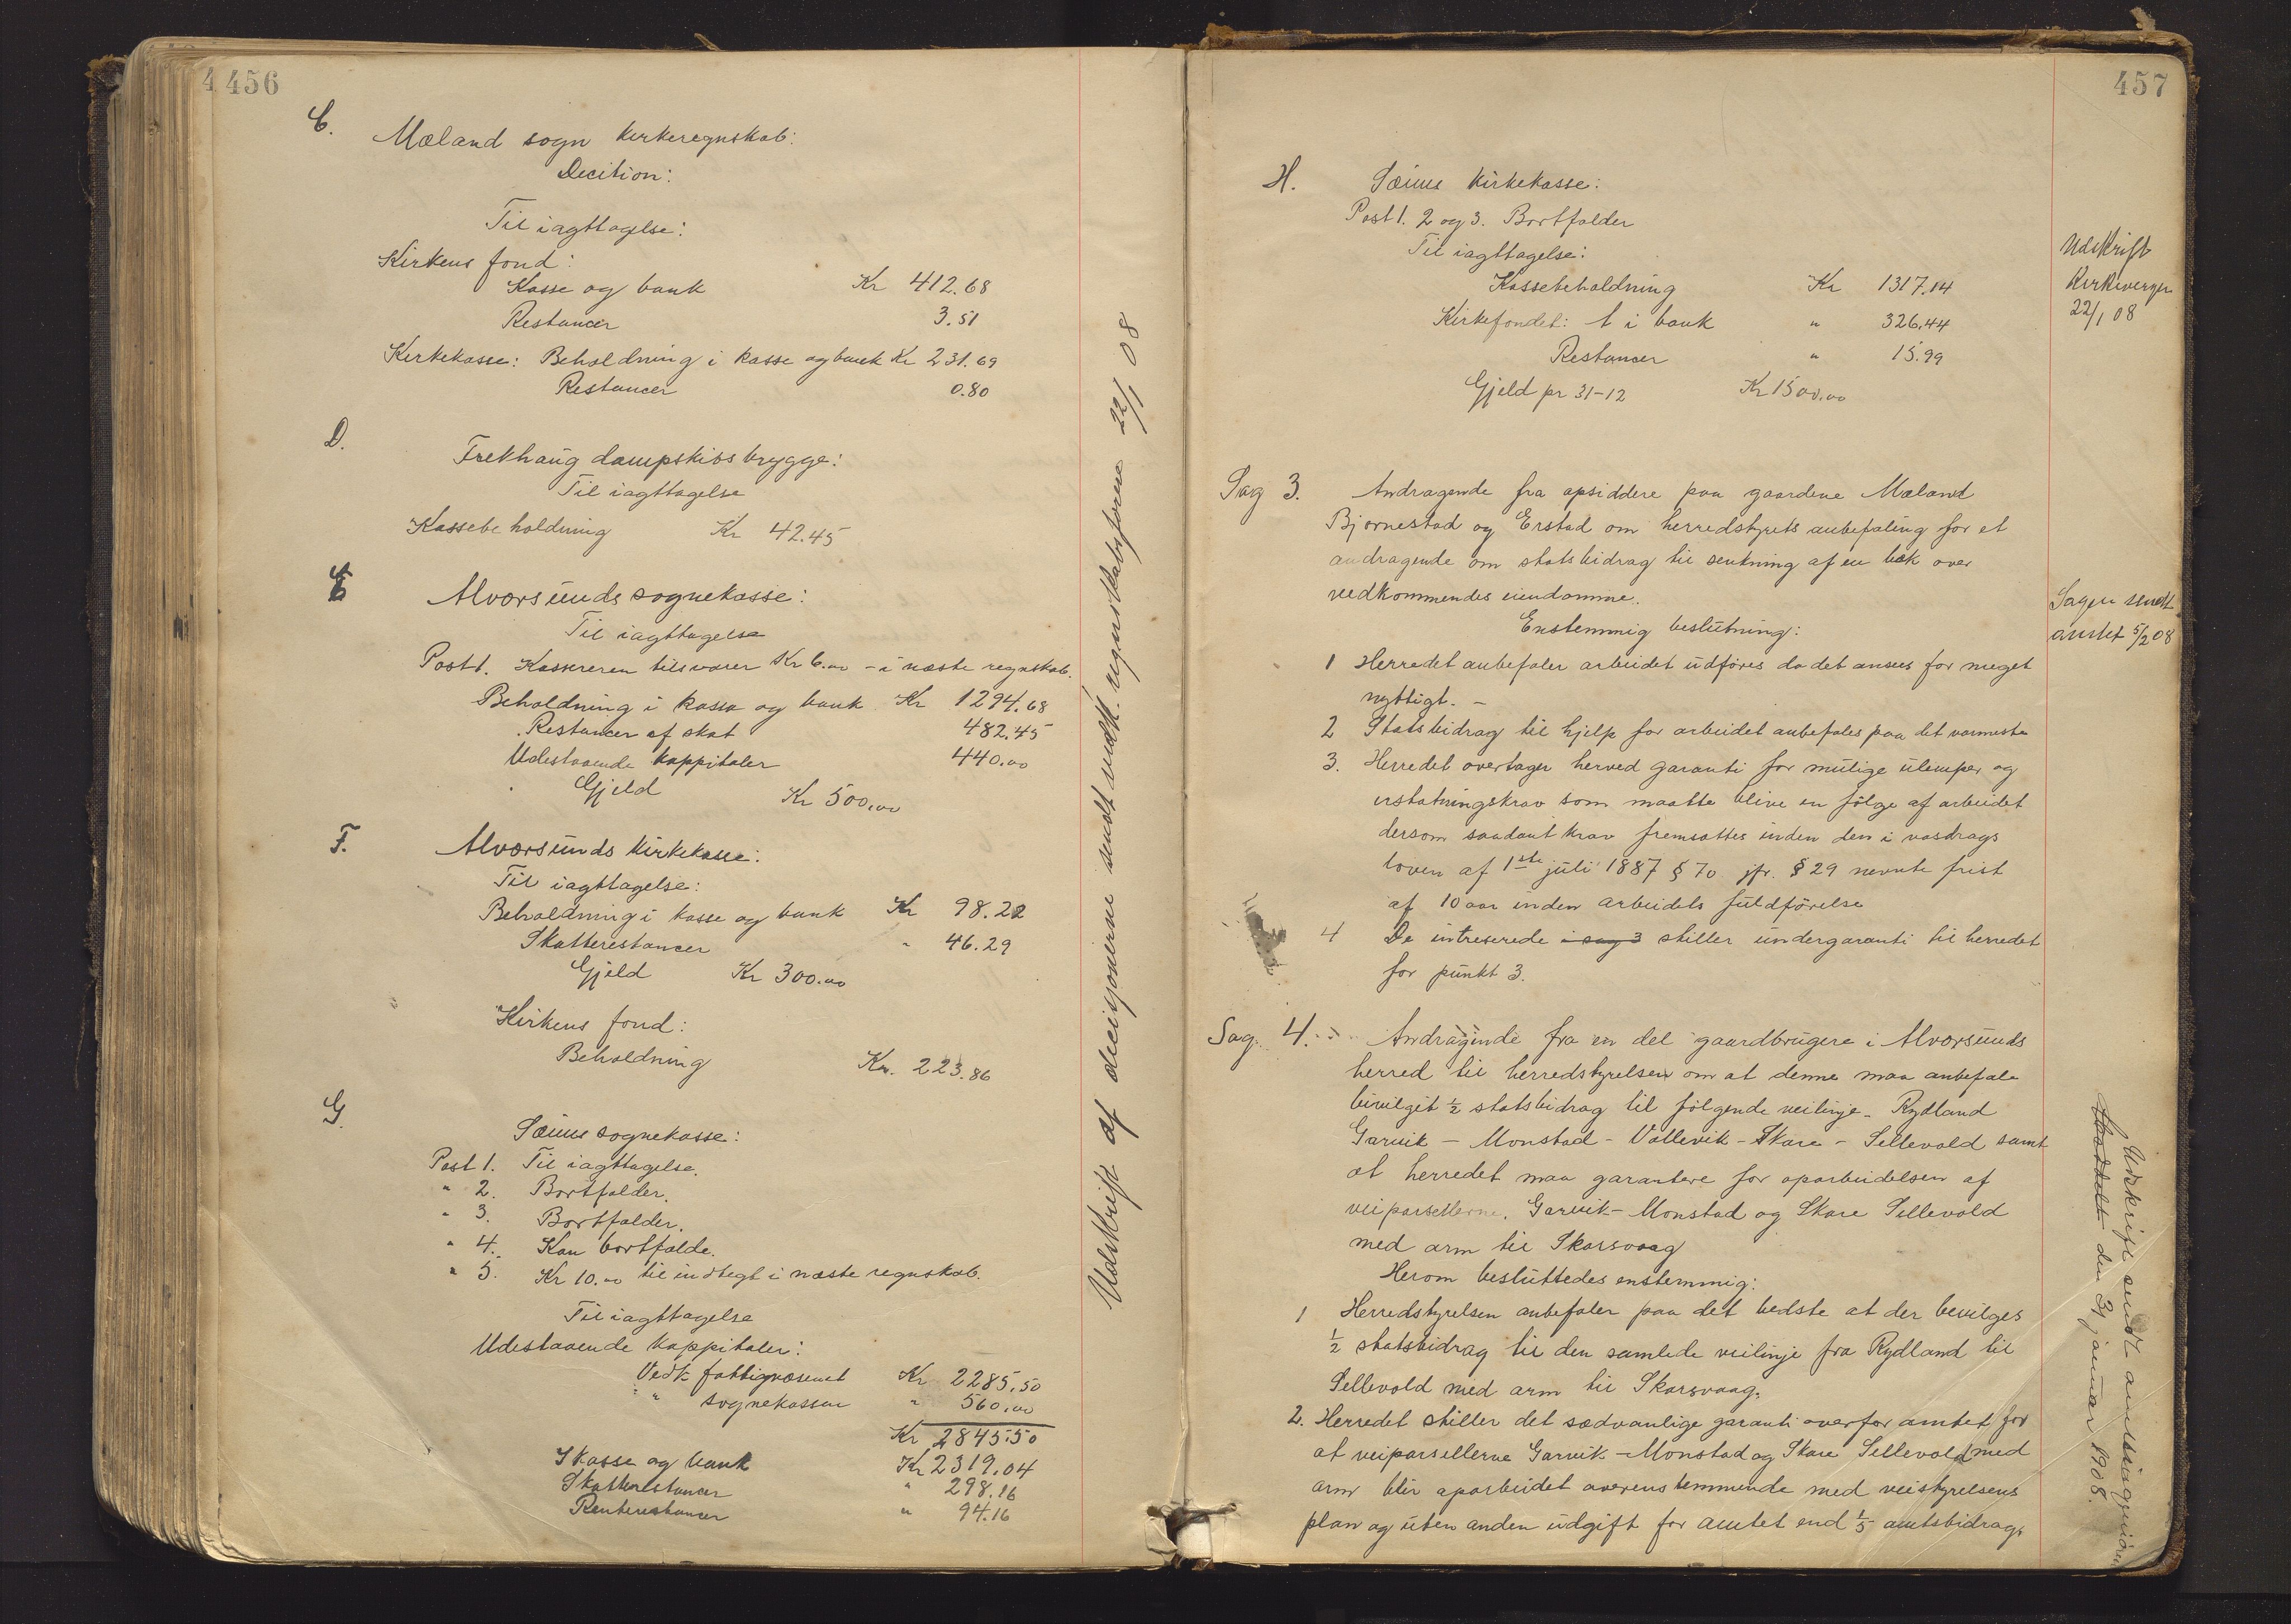 456
C.
Mæland sogn kirkeregnskab:
Decition:
Til iagttagelse:
Kirkens fond:
Kasse og bank Kr 412.68
Restancer 3.51
Kirkekasse: Beholdning i kasse og bank Kr 231.69
Restancer 0.80
D.
Frekhaug dampskibsbrygge:
Til iagttagelse
Kassebeholdning Kr 42.45
E
Alversunds sognekasse:
Til iagttagelse
Post 1. Kassereren tilsvarer Kr 6.00 - i næste regnskab.
Beholdning i kassa og bank Kr 1294.68
Restancer af skat 482.45
Udestaaende kappitaler 440.00
Gjeld Kr 500.00
F.
Alversunds kirkekasse:
Til iagttagelse:
Beholdning i kasse og bank Kr 98.22
Skatterestancer " 46.29
Gjeld Kr 300.00
Kirkens fond:
Beholdning Kr. 223.86
G.
Sæims sognekasse:
Post 1. Til iagttagelse.
" 2. Bortfalder.
" 3. Bortfalder.
" 4. Kan bortfalde.
" 5. Kr 10.00 til indtegt i næste regnskab.
Til iagttagelse
Udestaaende kappitaler:
Vedk fattigvæsenet Kr 2285.50
" " sognekassen " 560.00
Kr 2845.50
I kasse og bank Kr 2319.04
Skatterestancer " 298.16
Renterestancer " 94.16
Udskrift af decisjonerne sendt vedk. regnskabsførere 22/1 08
457
H. Sæims kirkekasse:
Post 1. 2 og 3. Bortfalder
Til iagttagelse:
Kassebeholdning Kr 1317.14
Kirkefondet: 1 i bank " 326.44
Restancer " 15.99
Gjeld pr 31-12 Kr 1500.00
Udskrift
Kirkeverger
22/1 08
Sag 3. Andragende fra opsiddere paa gaardene Mæland
Bjørnestad og Erstad om herredstyrets anbefaling for et
andragende om statsbidrag til senkning af en bæk over
vedkommendes eiendomme.
Enstemmig beslutning:
Sagen sendt
amtet 5/2 08
1 Herredet anbefaler arbeidet udføres da det ansees for meget
nyttigt. -
2 Statsbidrag til hjelp for arbeidet anbefales paa det varmeste
3. Herredet overtager herved garanti for mulige ulemper og
erstatningskrav som maatte blive en følge af arbeidet
dersom saadant krav fremsættes inden den i vasdrags
loven af 1ste juli 1887 § 70 jfr. § 29 nevnte frist
af 10 aar inden arbeidets fuldførelse
4 De intreserede i sag 3 stiller undergaranti til herredet
for punkt 3.
Sag. 4. Andragende fra en del gaardbrugere i Alversunds
herred til herredstyrelsen om at denne maa anbefale
bivilget 1/2 statsbidrag til følgende veilinje - Rydland
Garvik - Monstad - Vollevik - Skare - Sellevold samt
at herredet maa garantere for oparbeidelsen af
veiparsellerne. Garvik - Monstad og Skare Sellevold
med arm til Skarsvaag
Herom besluttedes enstemmig:
1 Herredstyrelsen anbefaler paa det bedste at der bevilges
1/2 statsbidrag til den samlede veilinje fra Rydland til
Sellevold med arm til Skarsvaag.
2. Herredet stiller det sædvanlige garanti overfor amtet for
at veiparsellerne Garvik - Monstad og Skare Sellevold med
arm blir oparbeidet overenstemmende med veistyrelsens
plan og uten anden udgift for amtet end 1/5 amtsbidrag.
Udskrift sendt amtsingeniøren
den 31 januar 1908.